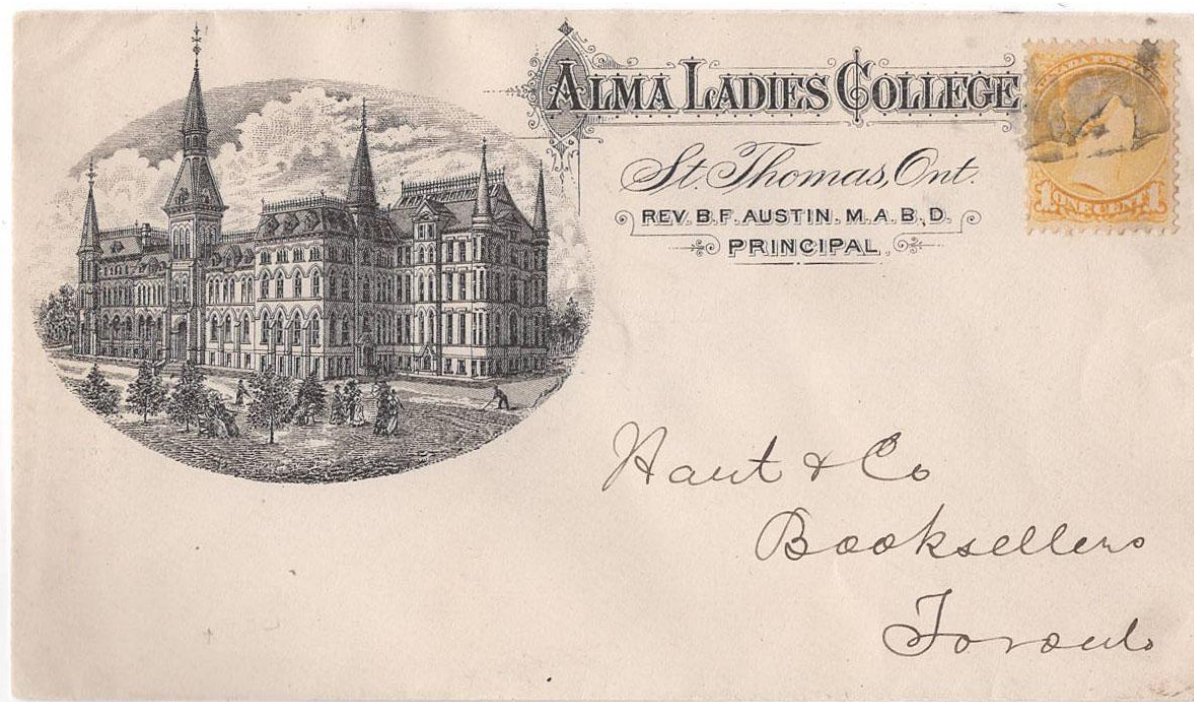 ALMA LADIES COLLEGE
St. Thomas, Ont.
REV. B. F. AUSTIN. M. A. B. D.
PRINCIPAL.
CANADA POSTAGE
1 ONE CENT 1
Hart & Co
Booksellers
Toronto